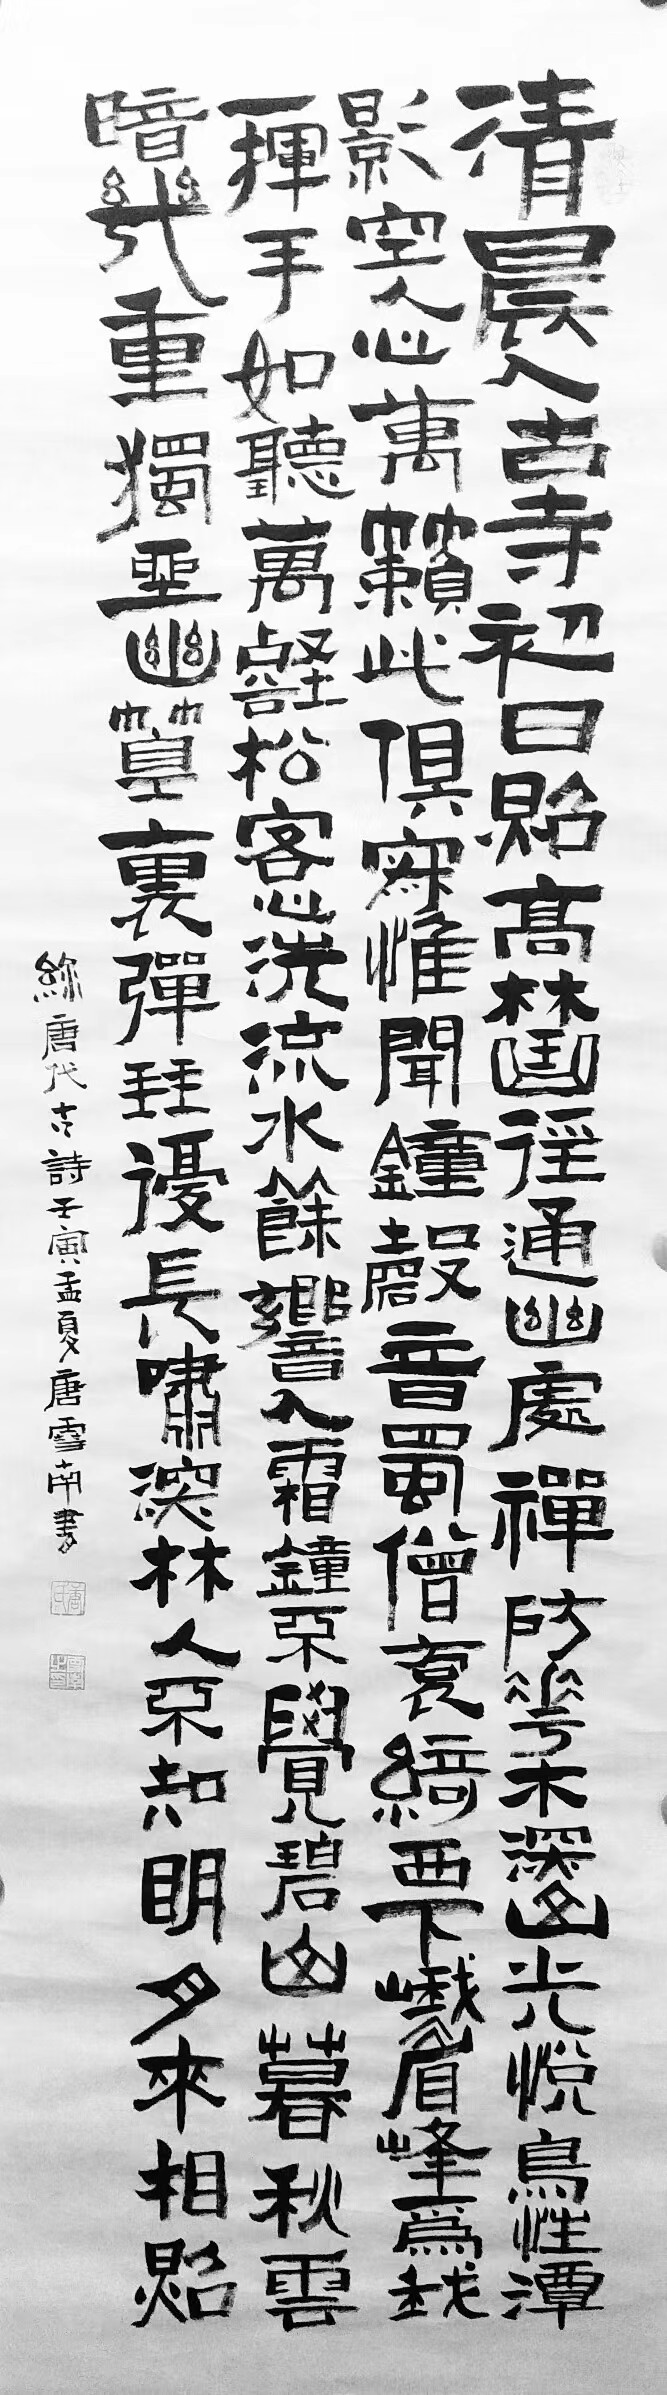 清晨入古寺初日照高林曲徑通幽處禪防花木深山光悅鳥性潭
影空人心萬籟此俱寂惟聞鐘磬音蜀僧袌綺西下峨眉峰爲我
一揮手如聽萬壑松客心洗流水餘響入霜鐘不覺碧山暮秋雲
暗幾重獨坐幽篁裏彈琴復長嘯深林人不知明月來相照
錄唐代古詩壬寅孟夏唐雪南書